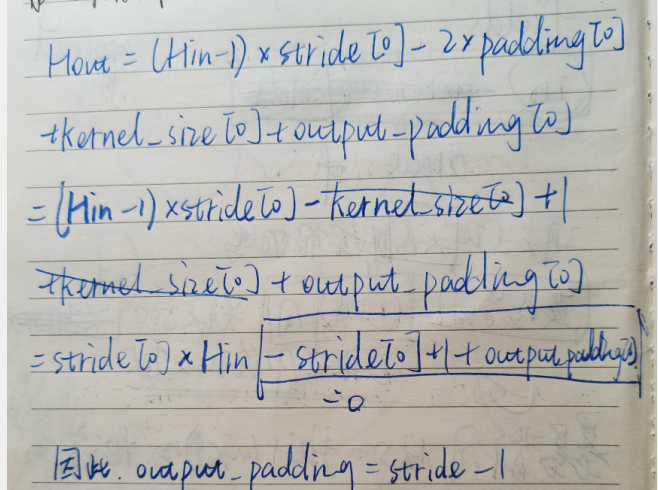 Hout = (Hin-1) × stride[0] - 2× padding[0]
+kernel_size[0] + output_padding[0]
= (Hin-1) × stride[0] - kernel_size[0] + 1
+kernel_size[0] + output_padding[0]
= stride[0] × Hin - stride[0] + 1 + output padding[0]
= 0
因此. output_padding = stride - 1